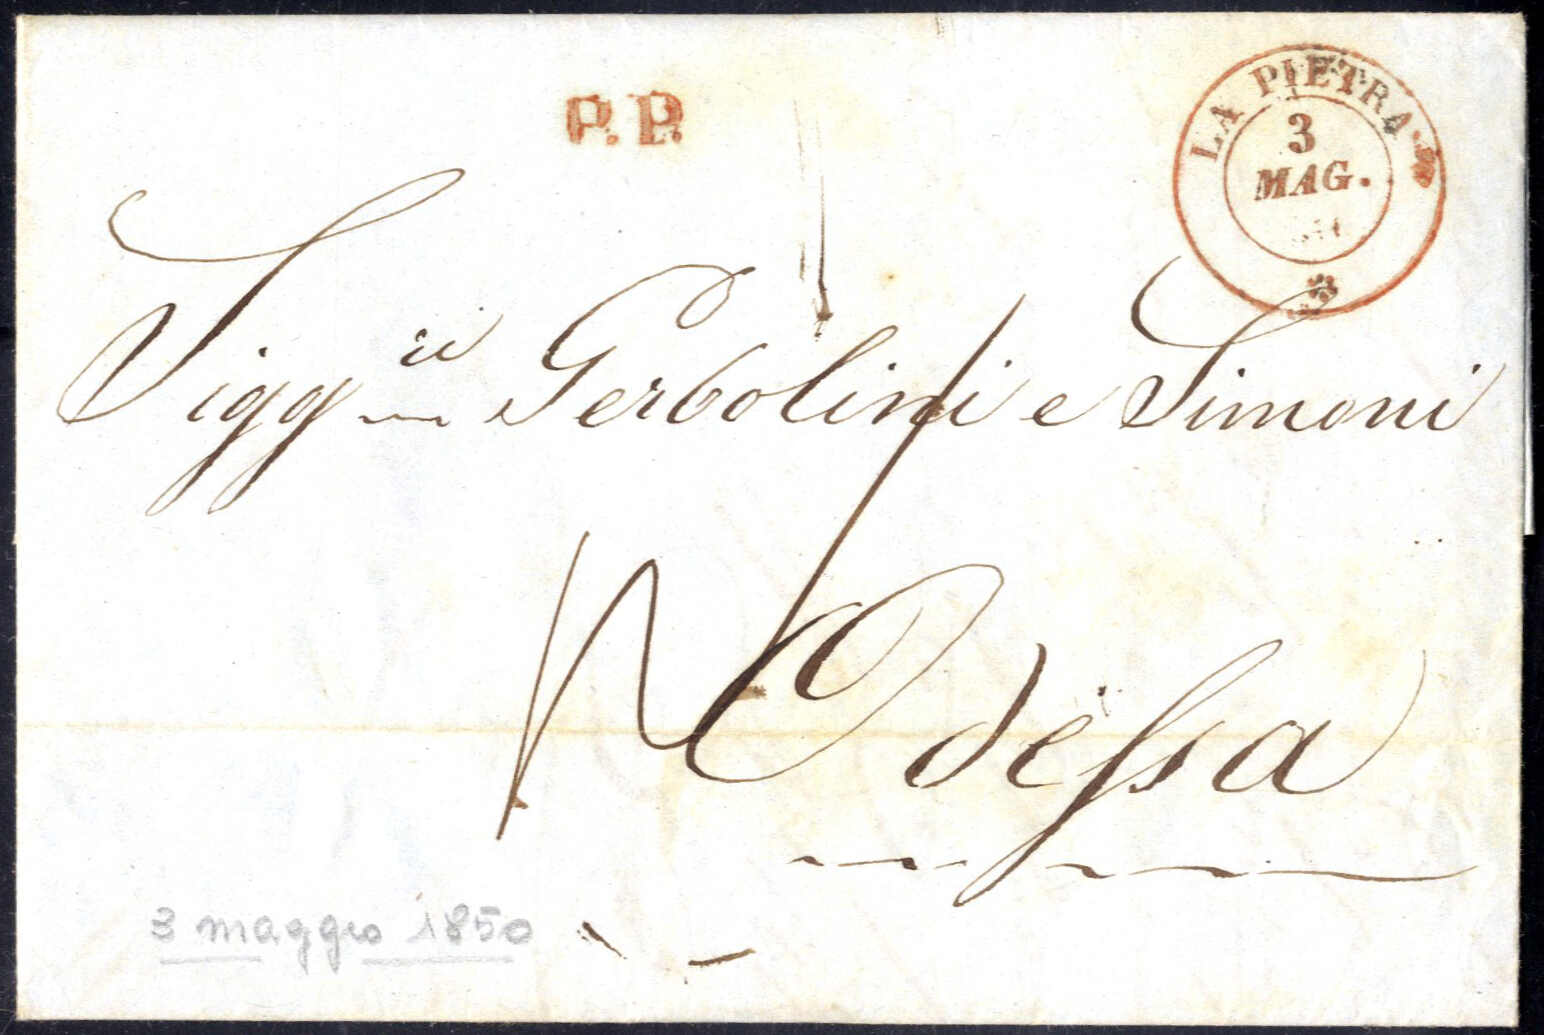 P.P.
LA PIETRA
3
MAG.
Sigg.ri Gerbolini e Simoni
Odessa
3 maggio 1850